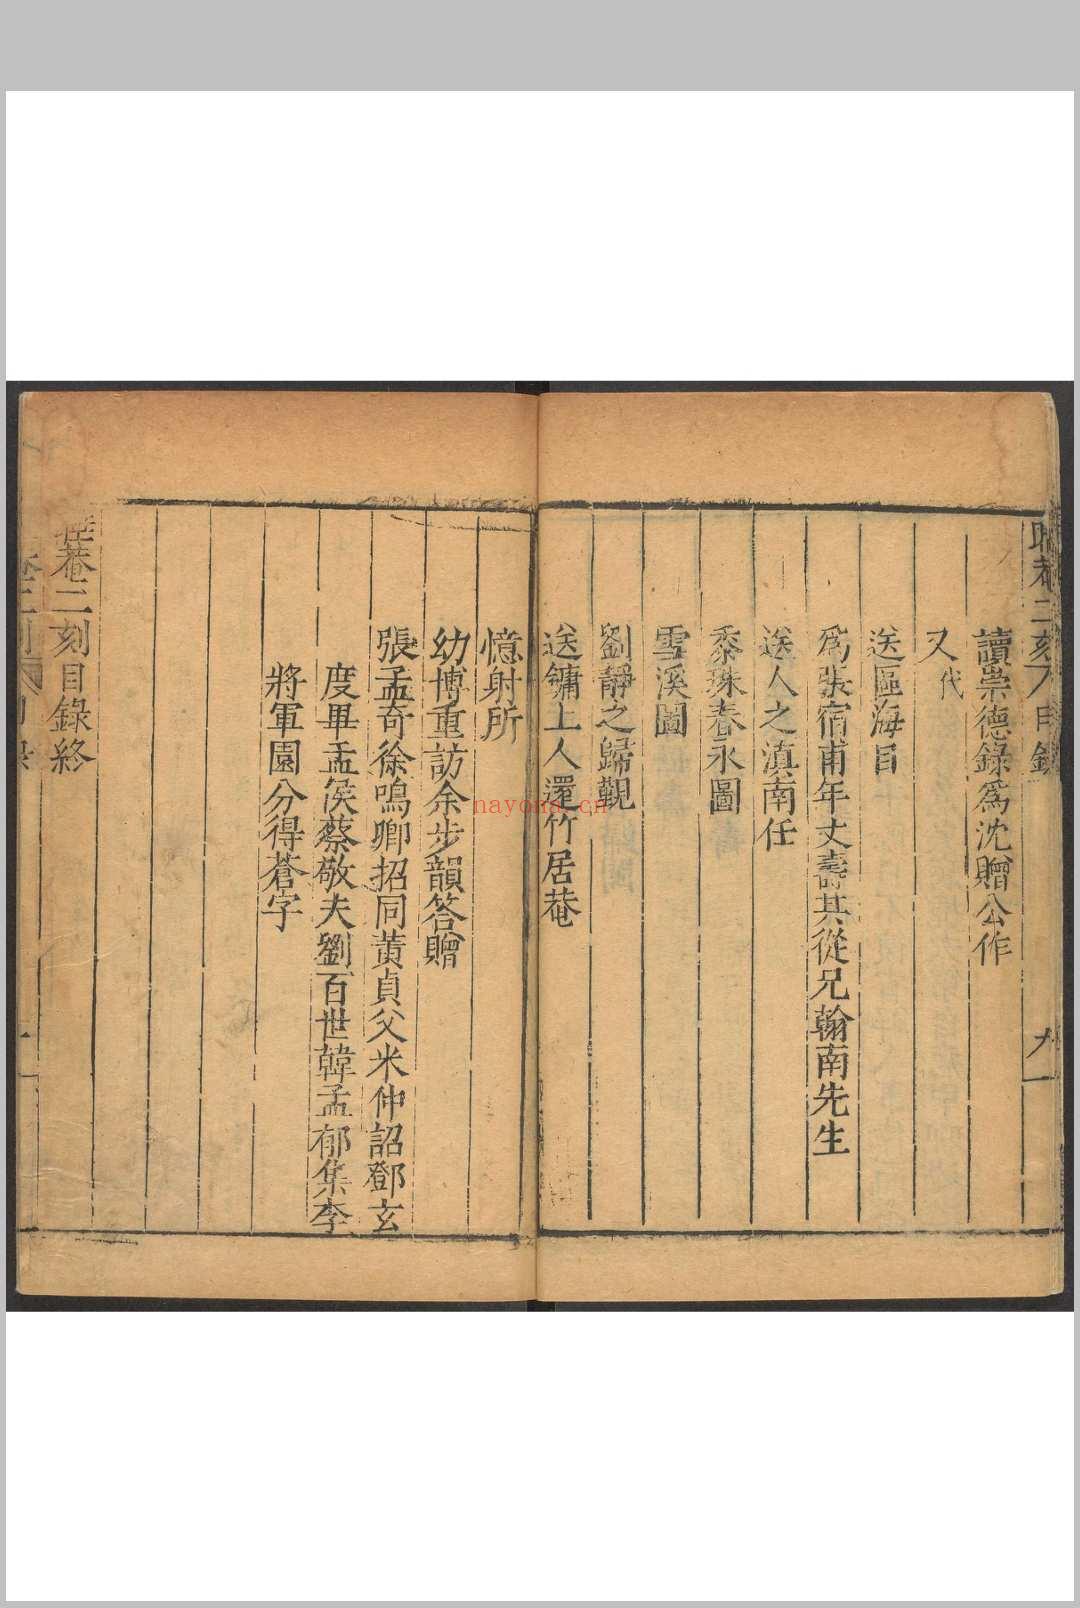 讀崇德錄爲沈贈公作
又代
送區海目
爲張宿甫年丈壽其從兄翰南先生
送人之滇南任
黍珠春永圖
雪溪圖
劉靜之歸覲
送鏞上人還竹居菴
憶射所
幼博重訪余步韻答贈
張孟奇徐鳴卿招同黃貞父米仲詔鄧玄
度畢孟侯蔡敬夫劉百世韓孟郁集李
將軍園分得蒼字
菴二刻目錄終
nayona.cn